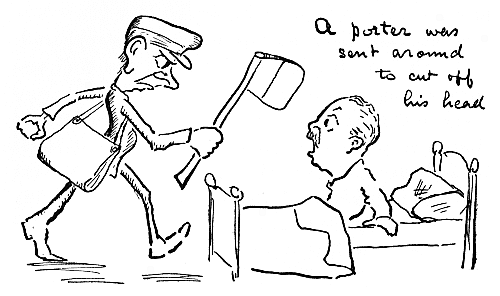 A porter was
sent around
to cut off
his head